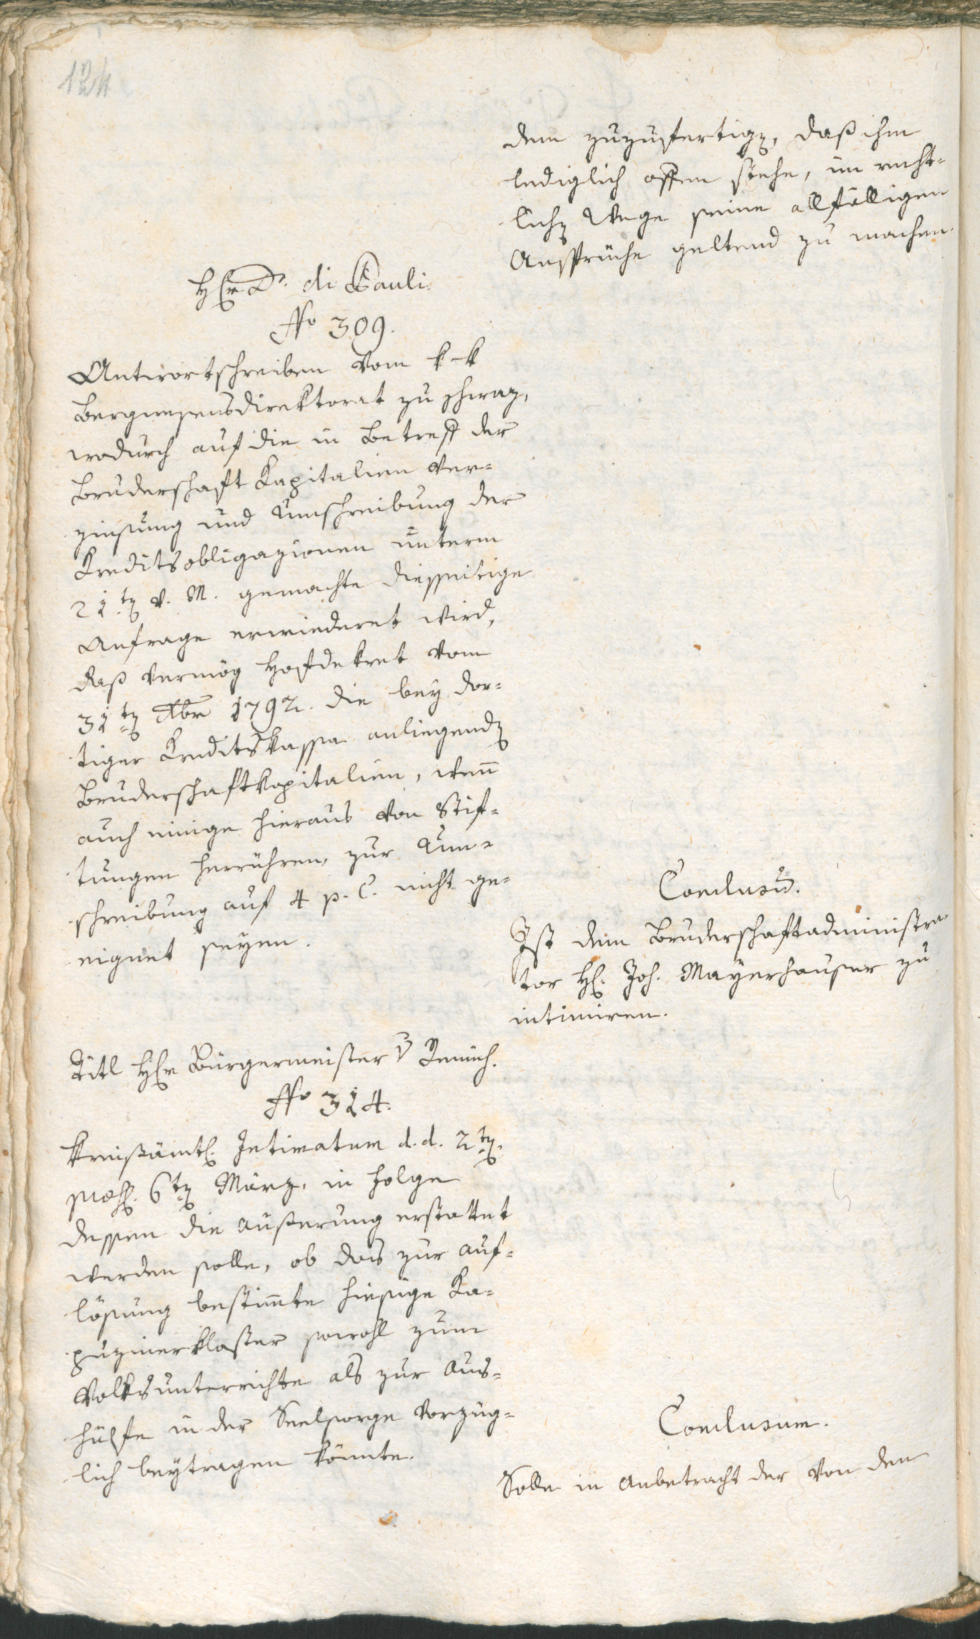 124
dem zuzufertigen, daß ihm
lediglich offen stehe, im recht-
lichen Wege seine allfälligen
Ansprüche geltend zu machen.
Hr Dr. di Pauli.
No 309.
Antwortschreiben vom k-k
Bergwesensdirektorat zu Schwaz,
wodurch auf die in Betreff der
Bruderschaft Kapitalien Ver-
zinsung und Umschreibung der
Kreditsobligazionen unterm
21ten v. M. gemachte diesseitige
Anfrage erwiederet wird,
daß vermög Hofdekret vom
31ten Xber 1792. die bey dor-
tiger Kreditskassa anliegenden
Bruderschaftkapitalien, wenn
auch einige hieraus von Stif-
tungen herrühren, zur Um-
schreibung auf 4 p. C. nicht ge-
eignet seyen.
Conclusum.
Ist dem Bruderschaftadministra-
tor H. Joh. Mayerhauser zu
intimiren.
Titl Hr Bürgermeister v
No 314.
Kreisämtl. Intimatum d. d. 2ten
praes. 6ten März, in Folge
dessen die Äußerung erstattet
werden solle, ob das zur Auf-
lösung bestimmte hiesige Ka-
puzinerkloster sowohl zum
Volksunterrichte als zur Aus-
hülfe in der Seelsorge vorzüg-
lich beytragen könnte.
Conclusum.
Solle in Anbetracht der von den